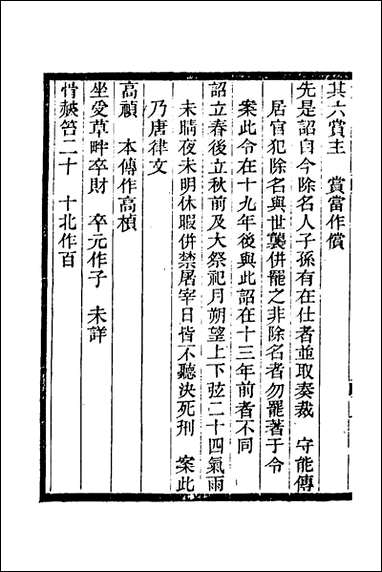 其六賞主　賞當作償
先是詔自今除名人子孫有在仕者並取奏裁　守能傳
居官犯除名與世襲併罷之非除名者勿罷著于令
案此令在十九年後與此詔在十三年前者不同
詔立春後立秋前及大祭祀月朔望上下弦二十四氣雨
未晴夜未明休暇併禁屠宰日皆不聽決死刑　案此
乃唐律文
高禎　本傳作高楨
坐受草畔卒財　卒元作子　未詳
脊棪笞二十　十北作百